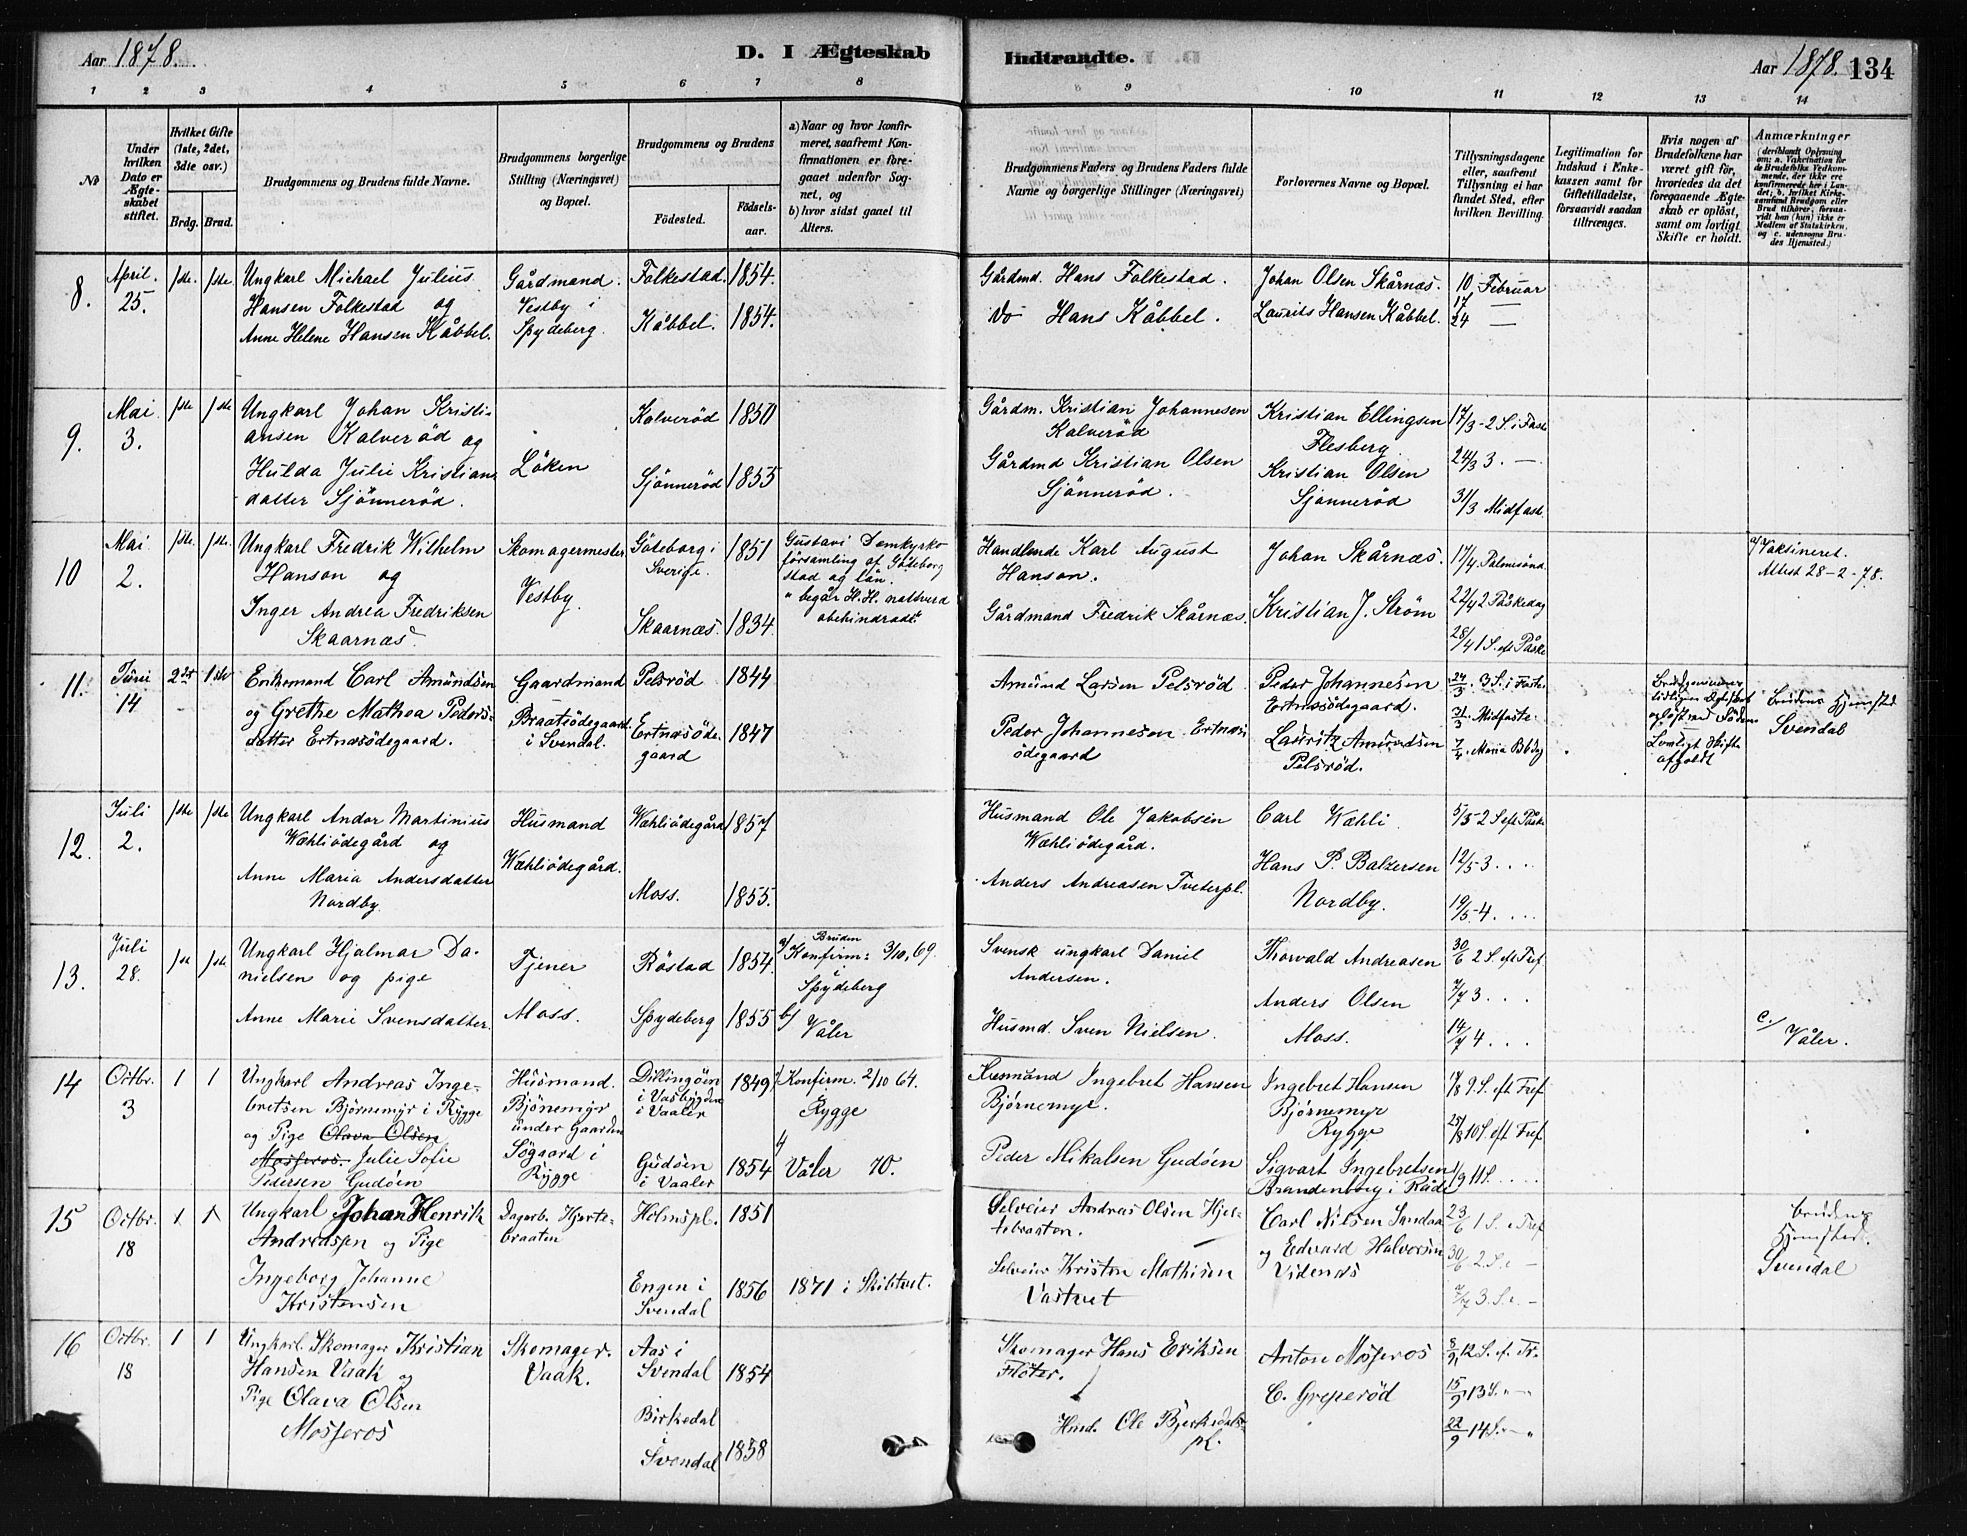 Aar 1878.
D. I Ægteskab
Indtraadte.
Aar 1878. 134
1 2 3 4 5 6 7 8
9 10 11 12 13 14
№
Under hvilken Dato er Ægteskabet stiftet.
Hvilket Gifte (1ste, 2det, 3die osv.)
Brdg. Brud.
Brudgommens og Brudens fulde Navne.
Brudgommens borgerlige Stilling (Næringsvei) og Bopæl.
Brudgommens og Brudens
Fødested.
Fødselsaar.
a) Naar og hvor konfirmeret, saafremt Konfirmationen er foregaaet udenfor Sognet, og
b) hvor sidst gaaet til Alters.
Brudgommens Faders og Brudens Faders fulde Navne og borgerlige Stillinger (Næringsvei)
Forlovernes Navne og Bopæl.
Tillysningsdagene eller, saafremt Tillysning ei har fundet Sted, efter hvilken Bevilling.
Legitimation for Indskud i Enkekassen samt for Giftetilladelse, forsaavidt saadan tiltrænges.
Hvis nogen af Brudefolkene har været gift før, hvorledes da det foregaaende Ægteskab er opløst, samt om lovligt Skifte er holdt.
Anmærkninger
(deriblandt Oplysning om: a. Vakcination for de Brudefolks Vedkommende, der ikke ere konfirmerede her i Landet; b. hvilket Kirkesamfund Brudgom eller Brud tilhører, forsaavidt han (hun) ikke er Medlem af Statskirken, og c. udensogns Brudes Hjemsted.)
8.
April. 25.
1ste. 1ste.
Ungkarl Michael Julius
Hansen Folkestad og
Anne Helene Hansen Kåbbel.
Gårdmand.
Vestby i
Spydeberg.
Folkestad. 1854.
Kåbbel. 1854.
Gårdmd. Hans Folkestad.
do Hans Kåbbel.
Johan Olsen Skårnæs.
Laurits Hansen Kåbbel.
10 Februar
17 —
24 —
9.
Mai 3.
1ste 1ste
Ungkarl Johan Kristi-
ansen Kalverød og
Hulda Julie Kristians
datter Sjönneröd.
Löken
Kalveröd 1850
Sjönneröd 1855
Gårdm. Kristian Johannesen
Kalveröd
Gårdmd Kristian Olsen
Sjönneröd.
Kristian Ellingsen
Flesberg
Kristian Olsen
Sjönneröd
17/3 - 2 S. i Faste
24/3 3. —
31/3 Midfast.
10
Mai 2.
1ste. 1ste.
Ungkarl Fredrik Wilhelm
Hanson og
Inger Andrea Fredriksen
Skaarnæs.
Skomagermester
Vestby.
Göteborg i
Sverige. 1851
Skaarnæs. 1834.
Gustavi Domkyrko
församling af Göteborg
stad og län.
" begår H. H. nattvard
obehindradt.
Handlende Karl August
Hanson.
Gårdmand Fredrik Skårnæs.
Johan Skårnæs.
Kristian J. Strøm
14/4 Palmesönd.
22/4 2 Påskedag
28/4 1 S. eft Påske
a/ Vaksineret.
Attest 28-2-78.
11.
Juni 14
2det 1ste
Enkemand Carl Amundsen
og Grethe Mathea Peders-
datter Ertnæsödegaard.
Gaardmand
Braatsödegaard
i Svendal.
Pelsröd 1844
Ertnæsöde-
gaard 1847
Amund Larsen Pelsröd
Peder Johannesen Ertnæs-
ödegaard
Peder Johannesen
Ertnæsödegaard.
Lauritz Amundsen
Pelsröd.
24/3. 3 S. i Faste.
31/3. Midfaste.
7/4. Maria Bbdg
Brudgommens
tidligere Ægteskab
oplöst ved Döden
Lovligt Skifte
afholdt
Brudens Hjemsted
Svendal
12.
Juli 2.
1ste 1ste
Ungkarl Andor Martinius
Wæhliödegård og
Anne Maria Andersdatter
Nordby.
Husmand
Wæhliödegård.
Wæhliödegård 1857
Moss. 1855.
Husmand Ole Jakobsen
Wæhliödegård.
Anders Andreasen Tveterpl.
Carl Wæhli
Hans P. Baltersen
Nordby.
5/5 - 2 S eft Påske
12/5 - 3. . . .
19/5 - 4. . . .
13.
Juli 28.
1ste 1ste
Ungkarl Hjalmar Da-
nielsen og pige
Anne Marie Svensdatter.
Tjener
Moss.
Råstad 1854.
Spydeberg 1855
a/ Bruden
Konfirm: 3/10, 69.
Spydeberg
b/ Våler
Svensk ungkarl Daniel
Andersen.
Husmd. Sven Nielsen.
Thorvald Andreasen
Anders Olsen
Moss.
30/6 2 S. eft Tref.
7/7 3. . . .
14/7 4 . . .
c./ Våler.
14
Octbr. 3
1 1
Ungkarl Andreas Inge-
bretsen Bjørnemyr i Rygge
og Pige Olava Olsen
Mosseros. Julie Sofie
Pedersen Gudöen
Husmand.
Bjönemyr
under Gaarden
Sögaard i
Rygge
Dillingöen
i Vasbygden
i Vaaler 1849
Gudöen
i Vaaler 1854
Konfirm. 2/10 64.
Rygge
Våler 70.
Husmand Ingebret Hansen
Bjørnemyr.
Peder Mikalsen Gudöen
Ingebret Hansen
Bjørnemyr
Rygge
Sigvart Ingebretsen
Brandenborg i Råde
18/8 9. S. eft Tref
25/8 10 S. eft Tref.
1/9 11 S. . . . .
15
Octbr. 18
1. 1
Ungkarl Johan Henrik
Andreassen og Pige
Ingeborg Johanne
Kristensen
Dagarb. Hjerte-
braaten
Holmspl. 1851
Engen i
Svendal 1856
1871 i Skiptvet.
Selveier Andreas Olsen Hjer-
tebraaten.
Selveier Kristen Mathisen
Vastvet
Carl Nilsen Sundaa
og Edvard Halvorsen
Videnæs
23/6 1 S. e Tref
30/6 2. S. e —
7/7 3. S. e. —
brudens
Hjemsted.
Svendal
16
Octbr. 18
1 1
Ungkarl. Skomager Kristian
Hansen Vaak og
Pige Olava Olsen
Mosseros
Skomager.
Vaak.
Aas i
Svendal 1854
Birkedal
i
Svendal 1858
Skomager Hans Eriksen
Flöter.
Husd. Ole Bjerkedals-
pl.
Anton Mosseros
C. Greperöd
8/9 12 S. ef. Tr.
15/9 13 S. " — "
22/9 14 S. " — "